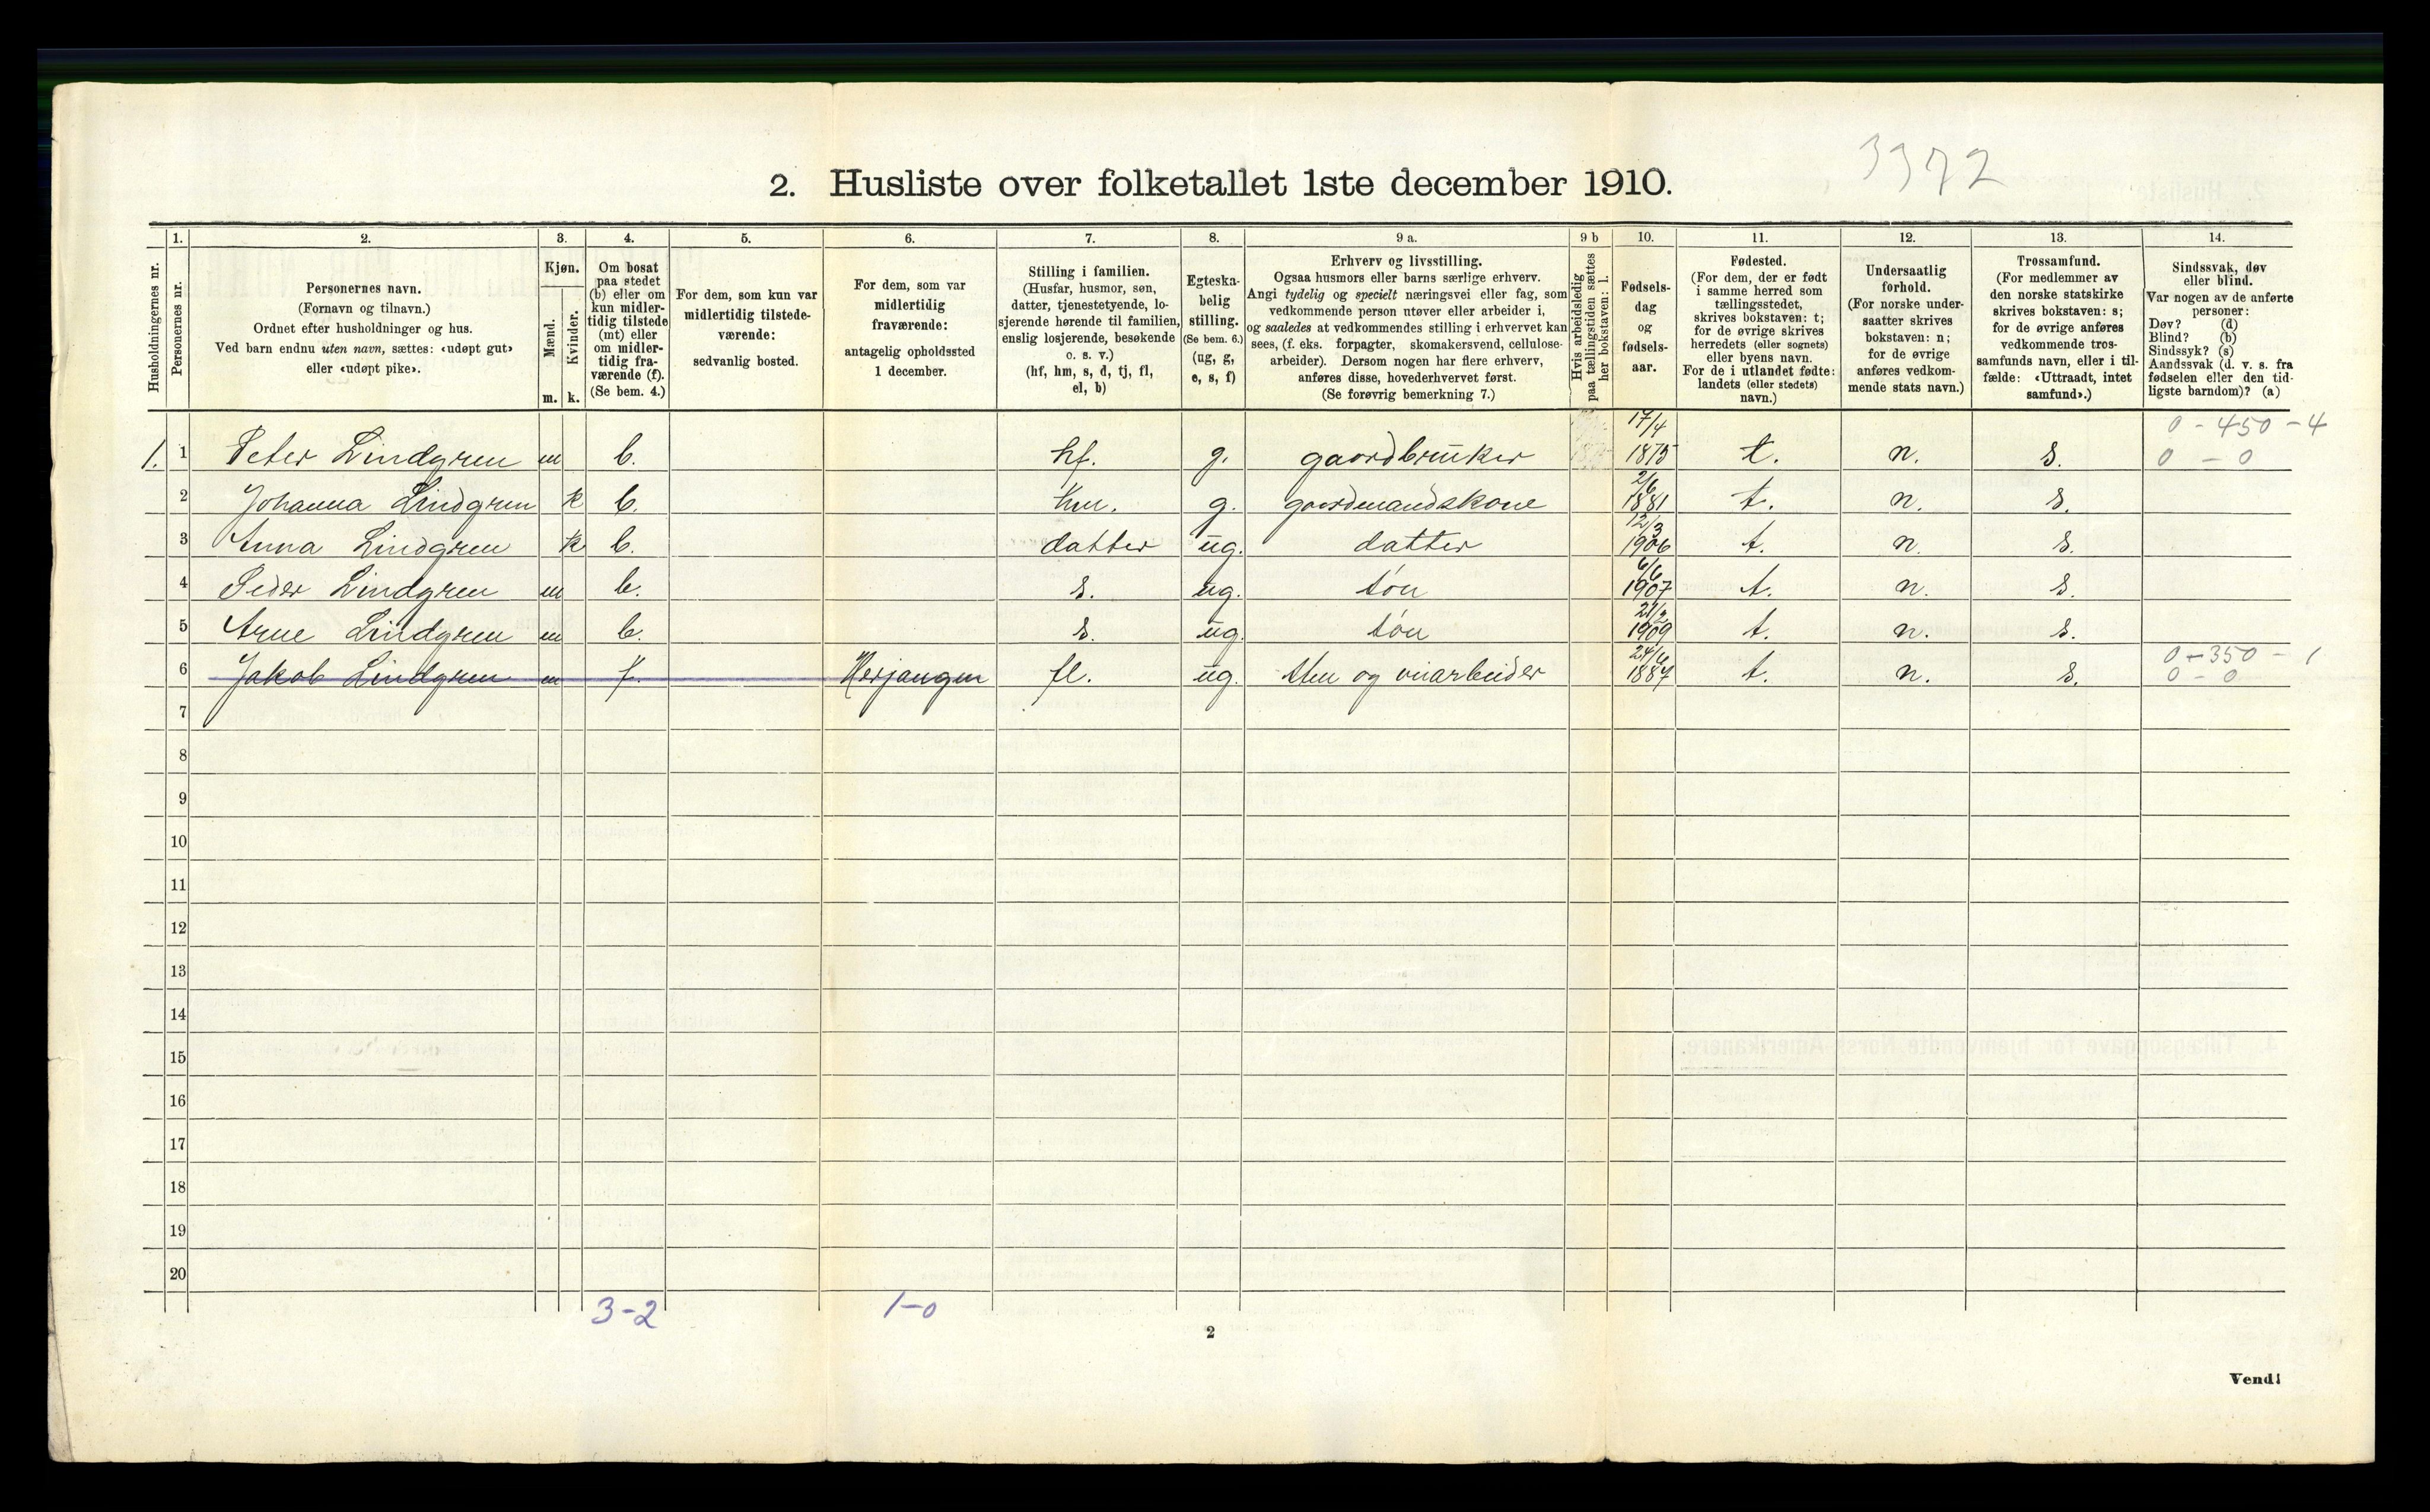 3372
2. Husliste over folketallet 1ste december 1910.
Husholdningernes nr.
1. Personernes nr.
2. Personernes navn.
(Fornavn og tilnavn.)
Ordnet efter husholdninger og hus.
Ved barn endnu uten navn, sættes: «udøpt gut»
eller «udøpt pike».
3. Kjøn.
Mænd. m.
Kvinder. k.
4. Om bosat
paa stedet
(b) eller om
kun midler-
tidig tilstede
(mt) eller
om midler-
tidig fra-
værende (f).
(Se bem. 4.)
5. For dem, som kun var
midlertidig tilstede-
værende:
sedvanlig bosted.
6. For dem, som var
midlertidig
fraværende:
antagelig opholdssted
1 december.
7. Stilling i familien.
(Husfar, husmor, søn,
datter, tjenestetyende, lo-
sjerende hørende til familien,
enslig losjerende, besøkende
o. s. v.)
(hf, hm, s, d, tj, fl,
el, b)
8. Egteska-
belig
stilling.
(Se bem. 6.)
(ug, g,
e, s, f)
9 a. Erhverv og livsstilling.
Ogsaa husmors eller barns særlige erhverv.
Angi tydelig og specielt næringsvei eller fag, som
vedkommende person utøver eller arbeider i,
og saaledes at vedkommendes stilling i erhvervet kan
sees, (f. eks. forpagter, skomakersvend, cellulose-
arbeider). Dersom nogen har flere erhverv,
anføres disse, hovederhvervet først.
(Se forøvrig bemerkning 7.)
9 b Hvis arbeidsledig
paa tællingstiden sættes
her bokstaven: l.
10. Fødsels-
dag
og
fødsels-
aar.
11. Fødested.
(For dem, der er født
i samme herred som
tællingsstedet,
skrives bokstaven: t;
for de øvrige skrives
herredets (eller sognets)
eller byens navn.
For de i utlandet fødte:
landets (eller stedets)
navn.)
12. Undersaatlig
forhold.
(For norske under-
saatter skrives
bokstaven: n;
for de øvrige
anføres vedkom-
mende stats navn.)
13. Trossamfund.
(For medlemmer av
den norske statskirke
skrives bokstaven: s;
for de øvrige anføres
vedkommende tros-
samfunds navn, eller i til-
fælde: «Uttraadt, intet
samfund».)
14. Sindssvak, døv
eller blind.
Var nogen av de anførte
personer:
Døv? (d)
Blind? (b)
Sindssyk? (s)
Aandssvak (d. v. s. fra
fødselen eller den tid-
ligste barndom)? (a)
17/4 0 - 450 - 4
1. 1 Peter Lindgren m b. hf. g. gaardbruker 1875 t. n. s. 0 - 0
2/6
2 Johanna Lindgren k b. hm. g. gaardmandskone 1881 t. n. s.
12/3
3 Anna Lindgren k b. datter ug. datter 1906 t. n. s.
6/6
4 Peder Lindgren m b. s. ug. søn 1907 t. n. s.
5 Arne Lindgren m b. s. ug. søn 1909 t. n. s.
0 - 350 - 1
6 Jakob Lindgren m f. Herjangen fl. ug. og t. n. s. 0 - 0
7
8
9
10
11
12
13
14
15
16
17
18
19
20
3-2 1-0
2
Vend!